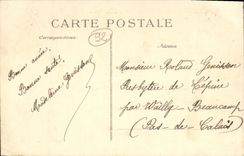 CARTE POSTALE
Correspondance
Adresse
92
Bonne année,
Bonne santé!
Madeleine
Monsieur Roland
Presbytère de Lépine
par Wailly Beaucamp
(Pas-de-Calais)